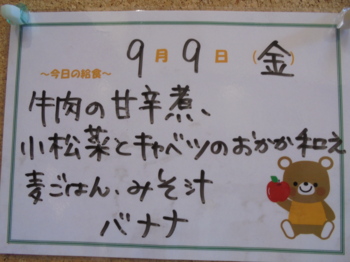 9月9日(金)
〜今日の給食〜
牛肉の甘辛煮、
小松菜とキャベツのおかか和え
麦ごはん、みそ汁
バナナ